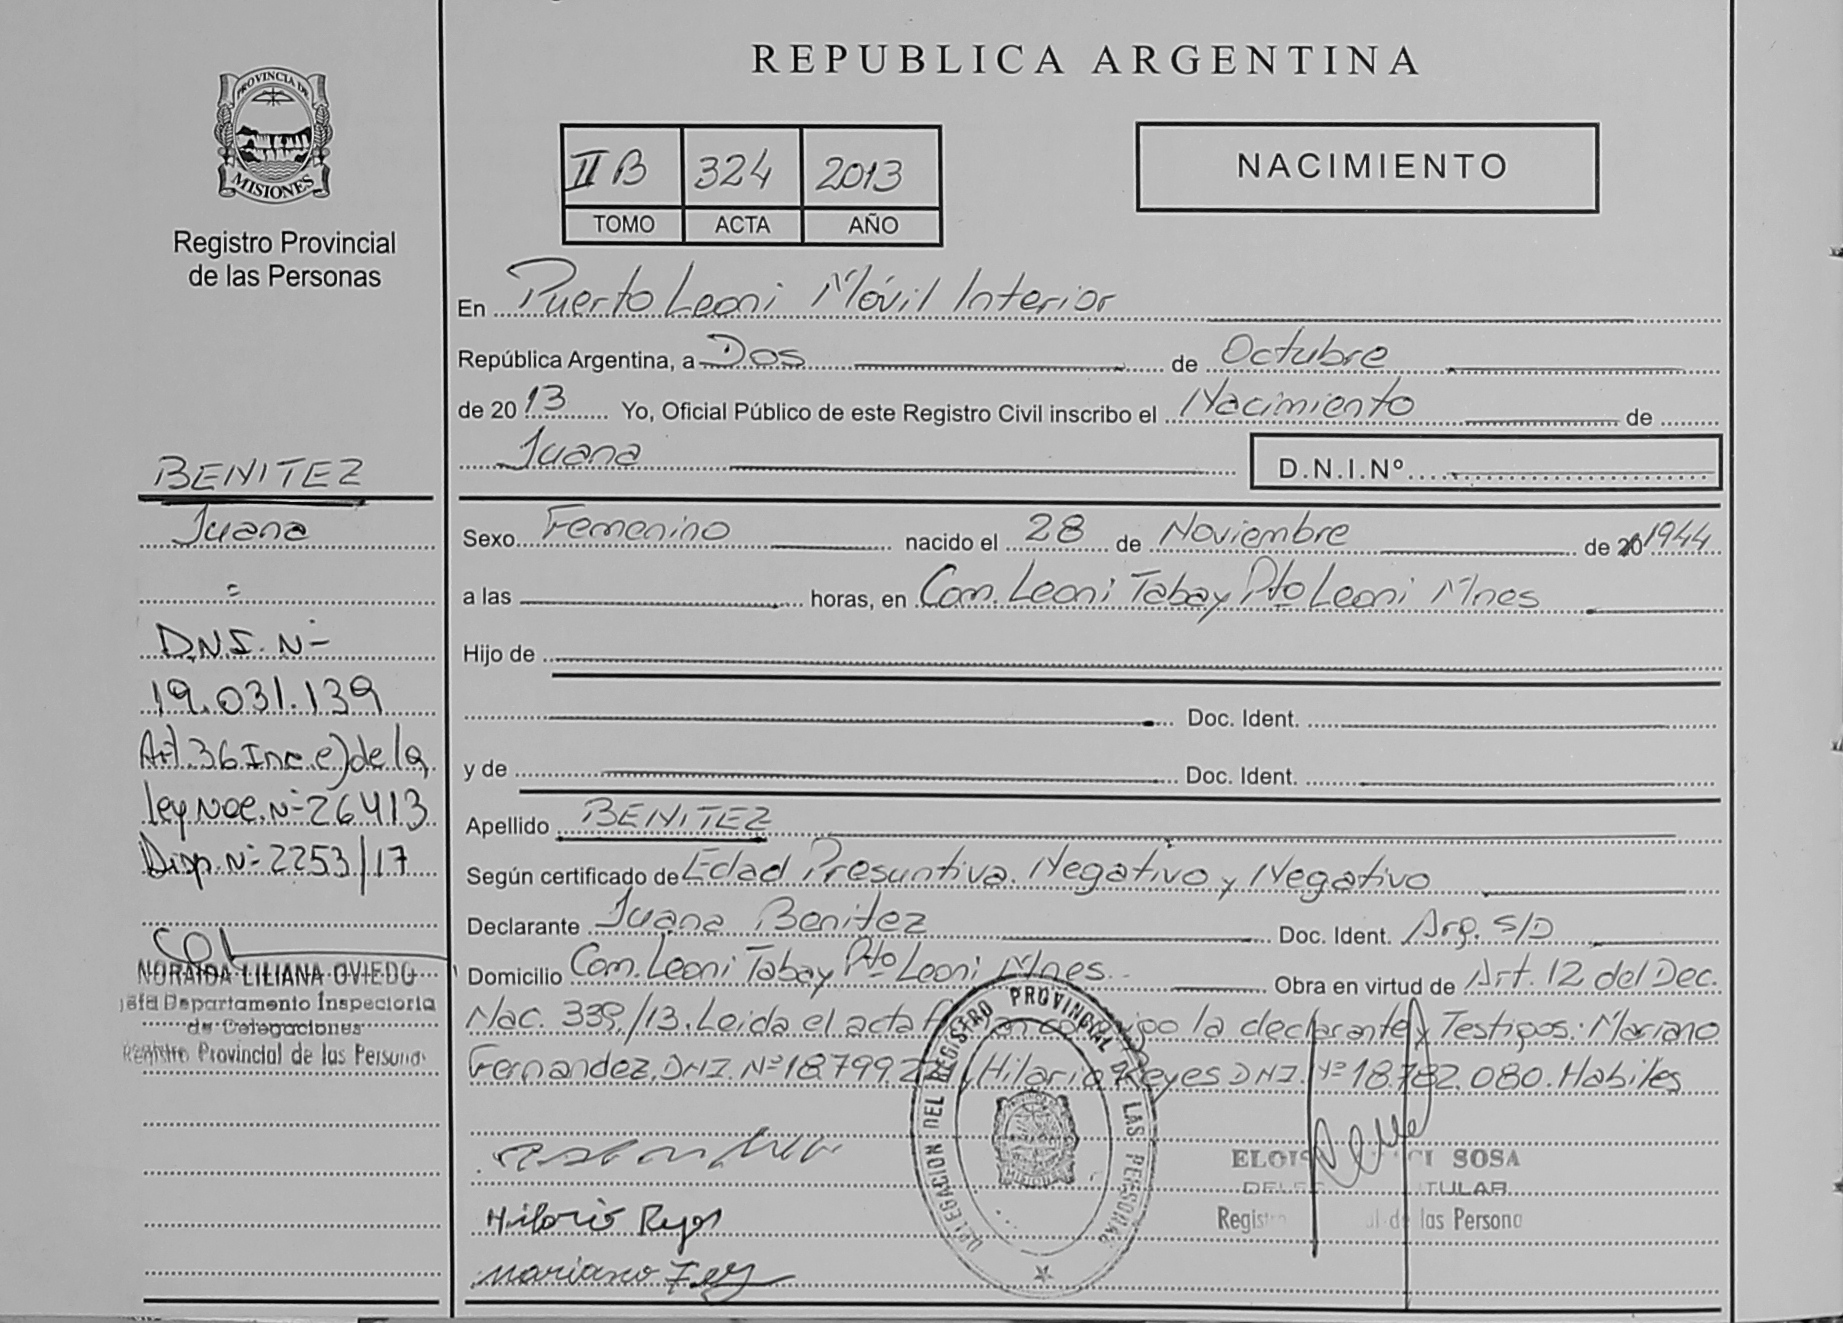 REPUBLICA ARGENTINA
PROVINCIA DE
MISIONES
Registro Provincial
de las Personas
II B 324 2013
TOMO ACTA AÑO
NACIMIENTO
En Puerto Leoni Móvil Interior
República Argentina, a Dos de Octubre
de 2013 Yo, Oficial Público de este Registro Civil inscribo el Nacimiento de
Juana D.N.I.Nº
BENITEZ
Juana
=
D.N.I. Nº
19.031.139
Art. 36 Inc. e) de la
ley Nac. Nº 26413
Disp. Nº 2253/17
NORAIDA LILIANA OVIEDO
Jefa Departamento Inspectoria
de Delegaciones
Registro Provincial de las Personas
Sexo Femenino nacido el 28 de Noviembre de 20 1944
a las horas, en Com. Leoni Tabay Pto Leoni Mnes
Hijo de
Doc. Ident.
y de Doc. Ident.
Apellido BENITEZ
Según certificado de Edad Presuntiva. Negativo y Negativo
Declarante Juana Benitez Doc. Ident. Arg. S/D
Domicilio Com. Leoni Tabay Pto Leoni Mnes. Obra en virtud de Art. 12 del Dec.
Nac. 339/13. Leida el acta conmigo la declarante y Testigos: Mariano
Fernandez, DNI. Nº y Hilario Reyes DNI. Nº 18.782.080. Habiles
DELEGACION DEL REGISTRO PROVINCIAL DE LAS PERSONAS
SOSA
TITULAR
Registro de las Persona
Hilario Reyes
Mariano